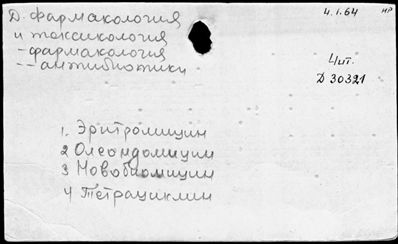 Д. фармакология
4.1.64 нр
и токсикология
-фармакология
--антибиотики
Чит.
Д 30321
1. Эритромицин
2 Олеандомицин
3 Новобиомицин
4 Тетрациклин